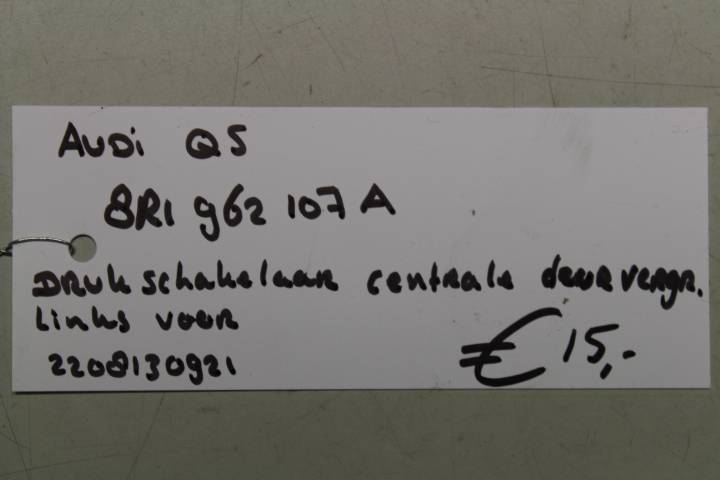 AUDI Q5
8R1 962 107 A
DRUKschakelaar centrale deurvergr.
Links voor
2208130921
€ 15,-